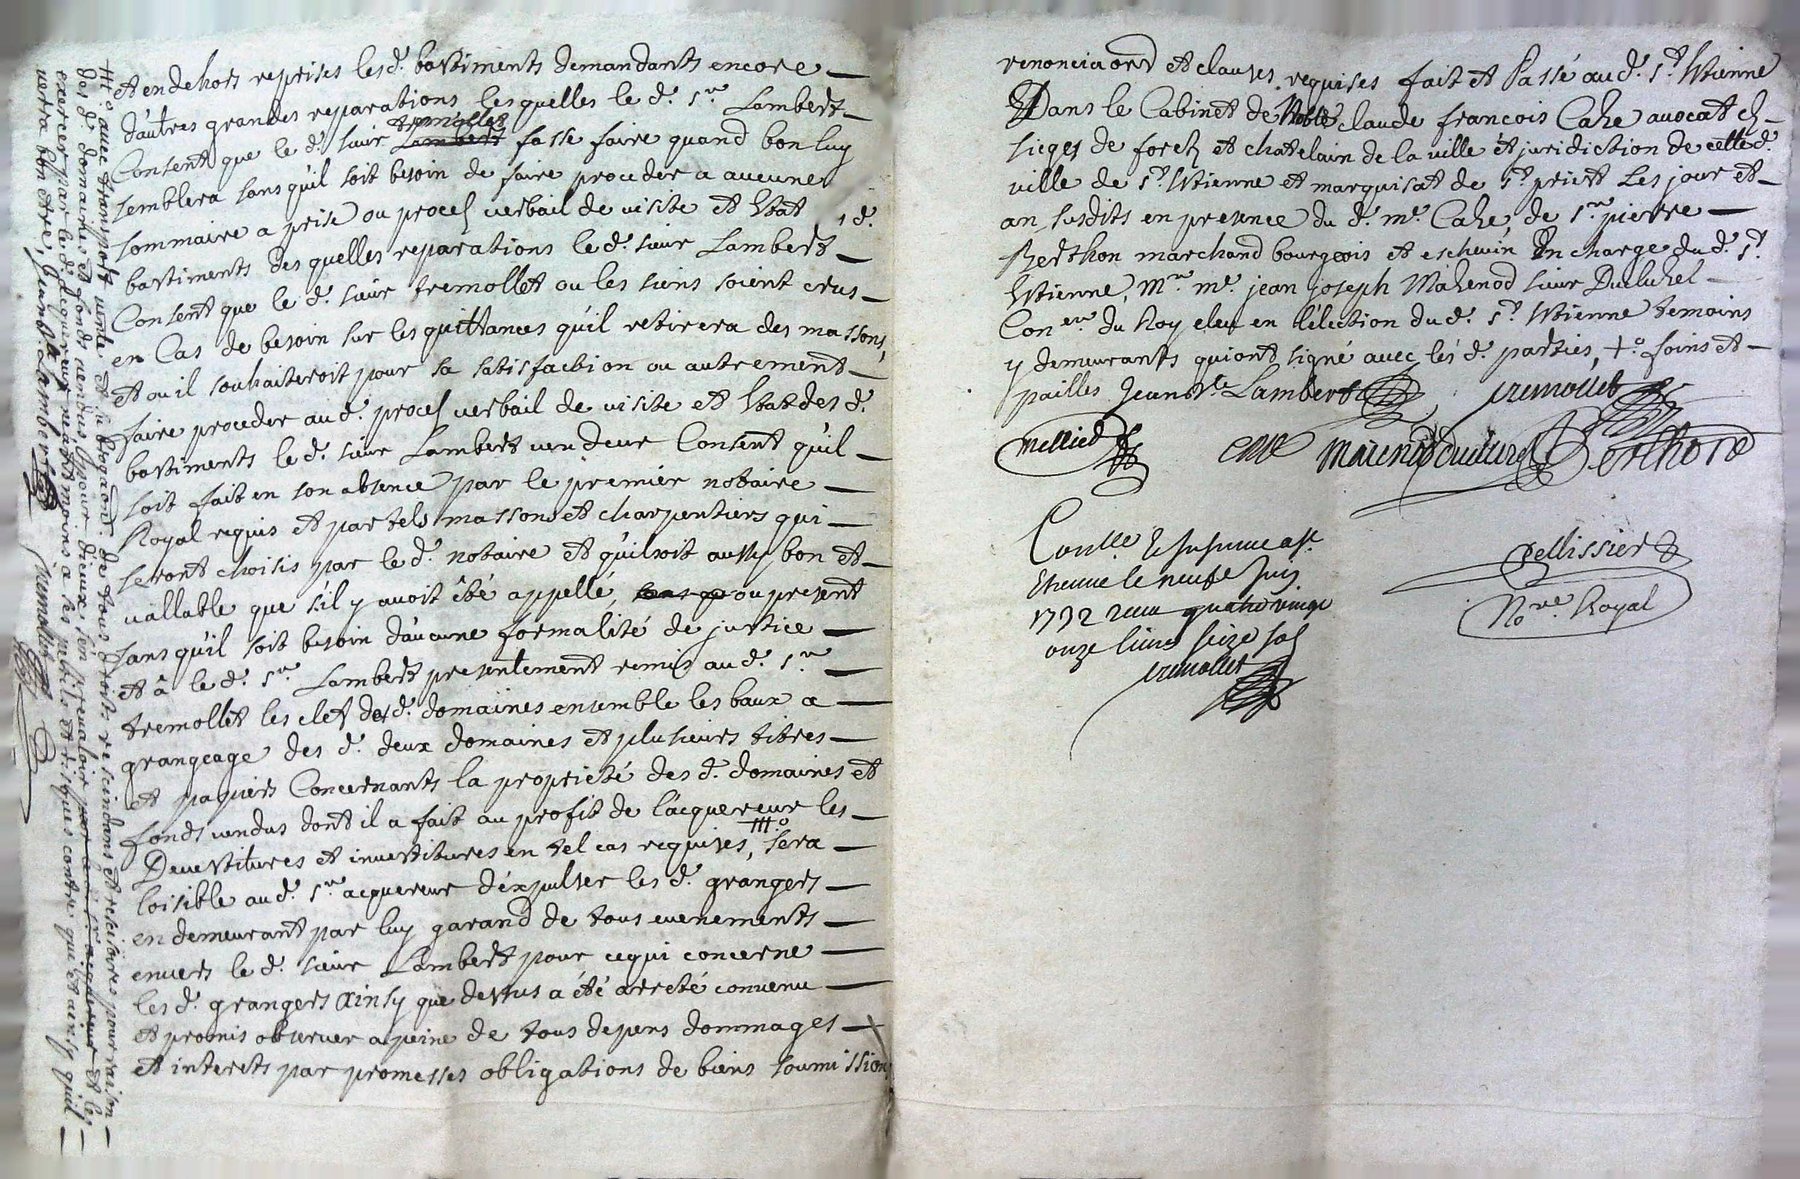 et en dehors reprises les d. bastiments demandants encore
d'autres grandes reparations lesquelles le d. Sr. Lambert
Consent que le d. sieur tremollet fasse faire quand bon luy
semblera sans qu'il soit besoin de faire proceder a aucune
sommaire a prise ou procés verbail de visite et Estat
bastiments desquelles reparations le d. sieur Lambert
Consent que le d. sieur tremollet ou les siens soient crus
en Cas de besoin sur les quittances qu'il retirera des massons,
et ou il souhaiteroit pour sa satisfaction ou autrement
faire proceder au d. procés verbail de visite et Estat des d.
bastiments le d. sieur Lambert vendeur Consent qu'il
soit fait en son absence par le premier notaire
Royal requis et par tels massons et charpentiers qui
seront choisis par le d. notaire et qu'il soit aussy bon et
vallable que s'il y avoit êté appellé, ou present
sans qu'il soit besoin d'aucune formalité de justice
et â le d. Sr. Lambert presentement remis au d. Sr.
tremollet les clef des d. domaines ensemble les baux a
grangeage des d. deux domaines et plusieurs titres
et papiers Concernants la proprieté des d. domaines et
fonds vendus dont il a fait au profit de l'acquereur les
Devestitures et investitures en tel cas requises, sera
loisible au d. Sr. acquereur d'éxpulser les d. grangers
en demeurant par luy garand de tous evenements
envers le d. sieur Lambert pour ce qui concerne
les d. grangers ainsy que dessus a été arreté convenu
et promis observer a peine de tous depens dommages
et interets par promesses obligations de biens soumissions
avec transport vente et subrogaon. de tous droits rescindans et rescisoires pour raison
des d. domaines et fonds vendus pour d'ieux s'en prevaloir par le d. Sr. acquereur et les
exercer par le d. acquereur neantmoins a ses perils et risques contre qui et ainsy qu'il
verra bon etre, Lambert tremollet
renonciaons et clauses requises fait et Passé au d. St. Etienne
Dans le Cabinet de Noble claude francois Cahe avocat es
sieges de forest et chatelain de la ville et juridiction de cette d.
ville de St. Etienne et marquisat de St. priest Les jour et
an susdits en presence du d. me. Cahe, de Sr. pierre
Berthon marchand bourgeois et eschevin En charge du d. St.
Etienne, Mr. me. jean joseph Mahenod sieur
Coner. du Roy eleu en l'élection du d. St. Etienne temoins
y demeurants qui ont signé avec les d. parties, +o. foins et
pailles Jean Lambert tremollet
Berthon
Etienne le neufe Juin
1732 receu quatre vingt
onze livres seize sols
tremollet
Pellissier
Nore. Royal